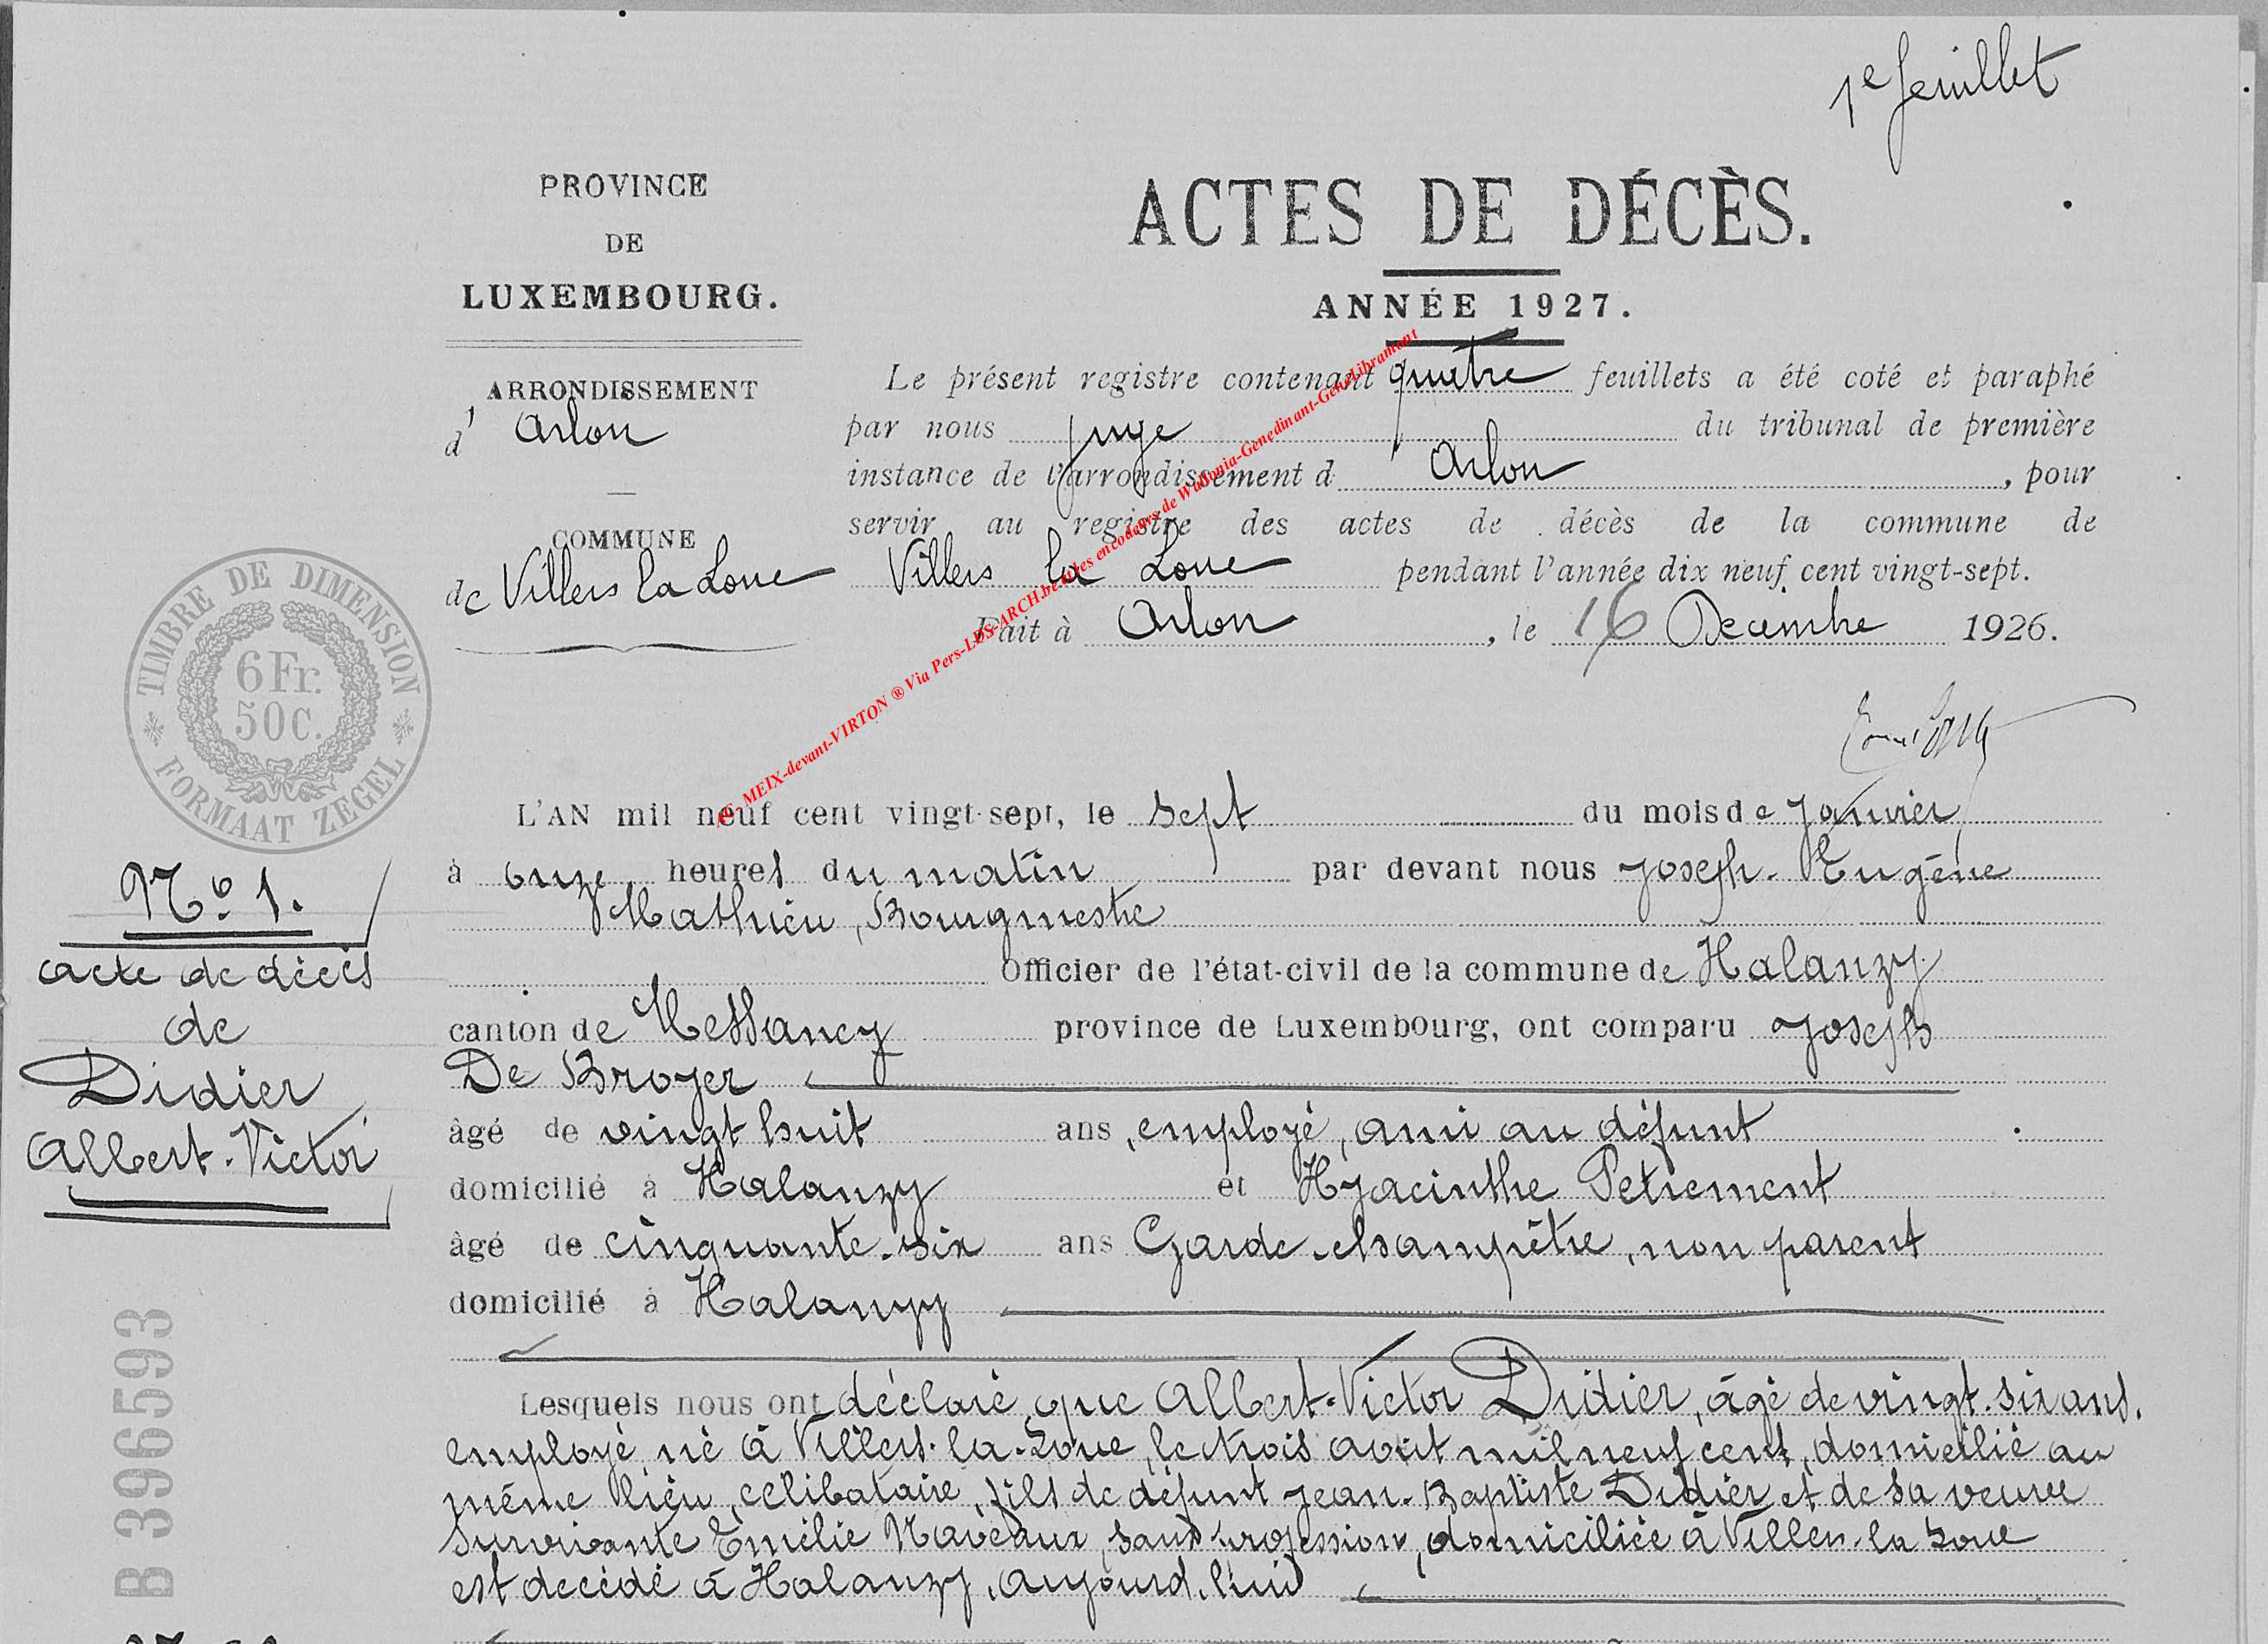 1e feuillet
PROVINCE
DE
LUXEMBOURG.
ARRONDISSEMENT
d' Arlon
COMMUNE
de Villers la Loue
ACTES DE DÉCÈS.
ANNÉE 1927.
Le présent registre contenant quatre feuillets a été coté et paraphé
par nous juge du tribunal de première
instance de l'arrondissement d Arlon , pour
servir au registre des actes de décès de la commune de
Villers la Loue pendant l'année dix neuf cent vingt-sept.
Fait à Arlon , le 16 Decembre 1926.
TIMBRE DE DIMENSION
6 Fr.
50 C.
FORMAAT ZEGEL
MEIX-devant-VIRTON ® Via Pers-LDS-ARCH.be et les encodeurs de Wallonia-Genedinant-GeneLibramont
No 1.
acte de décès
de
Didier
Albert-Victor
B 396593
L'AN mil neuf cent vingt-sept, le sept du mois de Janvier
à onze heures du matin par devant nous Joseph-Eugène
Mathieu, Bourgmestre
Officier de l'état-civil de la commune de Halanzy
canton de Messancy province de Luxembourg, ont comparu Joseph
De Broyer
âgé de vingt huit ans, employé, ami au défunt
domicilié à Halanzy et Hyacinthe Petrement
âgé de cinquante-six ans Garde-champêtre, non parent
domicilié à Halanzy
Lesquels nous ont déclaré que Albert-Victor Didier, âgé de vingt-six ans,
employé, né à Villers-la-Loue, le trois août mil neuf cent, domicilié au
même lieu, célibataire, fils de défunt Jean-Baptiste Didier et de sa veuve
survivante Emélie Navéaux, sans profession, domiciliée à Villers-la Loue
est décédé à Halanzy, aujourd'hui